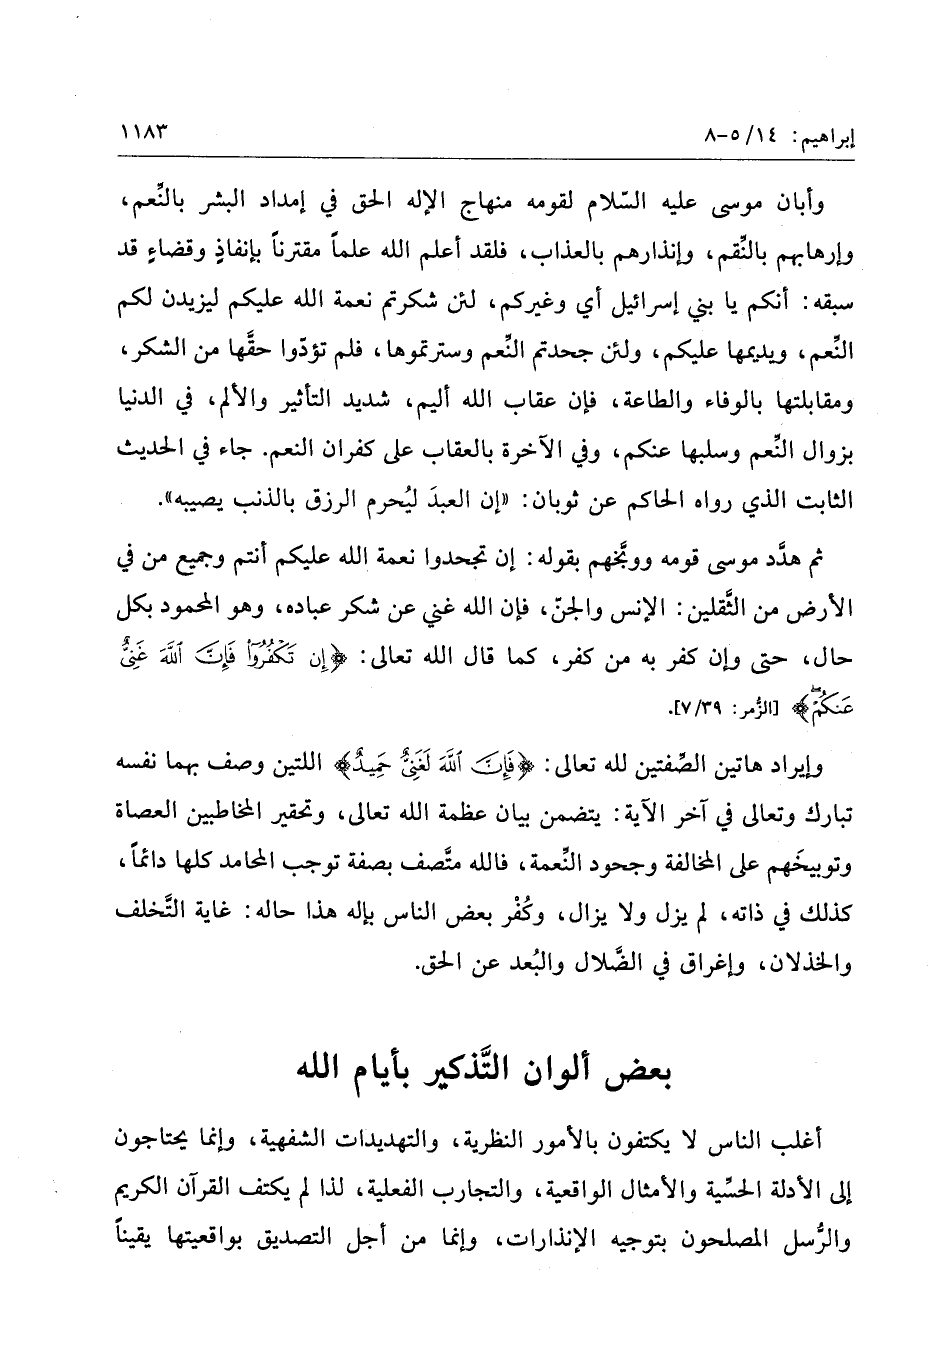 إبراهيم: ١٤/ ٥-٨ ١١٨٣
وأبان موسى عليه السّلام لقومه منهاج الإله الحق في إمداد البشر بالنِّعم،
وإرهابهم بالنِّقم، وإنذارهم بالعذاب، فلقد أعلم الله علماً مقترناً بإنفاذٍ وقضاءٍ قد
سبقه: أنكم يا بني إسرائيل أي وغيركم، لئن شكرتم نعمة الله عليكم ليزيدن لكم
النِّعم، ويديمها عليكم، ولئن جحدتم النِّعم وسترتموها، فلم تؤدّوا حقَّها من الشكر،
ومقابلتها بالوفاء والطاعة، فإن عقاب الله أليم، شديد التأثير والألم، في الدنيا
بزوال النِّعم وسلبها عنكم، وفي الآخرة بالعقاب على كفران النعم. جاء في الحديث
الثابت الذي رواه الحاكم عن ثوبان: «إن العبدَ ليُحرم الرزق بالذنب يصيبه».
ثم هدَّد موسى قومه ووبَّخهم بقوله: إن تجحدوا نعمة الله عليكم أنتم وجميع من في
الأرض من الثَّقلين: الإنس والجنّ، فإن الله غني عن شكر عباده، وهو المحمود بكل
حال، حتى وإن كفر به من كفر، كما قال الله تعالى: ﴿إِن تَكْفُرُوٓا۟ فَإِنَّ ٱللَّهَ غَنِىٌّ
عَنكُمْ ۖ﴾ [الزُّمر: ٧/٣٩].
وإيراد هاتين الصِّفتين لله تعالى: ﴿فَإِنَّ ٱللَّهَ لَغَنِىٌّ حَمِيدٌ﴾ اللتين وصف بهما نفسه
تبارك وتعالى في آخر الآية: يتضمن بيان عظمة الله تعالى، وتحقير المخاطبين العصاة
وتوبيخَهم على المخالفة وجحود النِّعمة، فالله متَّصف بصفة توجب المحامد كلها دائماً،
كذلك في ذاته، لم يزل ولا يزال، وكُفْر بعض الناس بإله هذا حاله: غاية التَّخلف
والخذلان، وإغراق في الضَّلال والبُعد عن الحق.
بعض ألوان التَّذكير بأيام الله
أغلب الناس لا يكتفون بالأمور النظرية، والتهديدات الشفهية، وإنما يحتاجون
إلى الأدلة الحسِّية والأمثال الواقعية، والتجارب الفعلية، لذا لم يكتف القرآن الكريم
والرُّسل المصلحون بتوجيه الإنذارات، وإنما من أجل التصديق بواقعيتها يقيناً